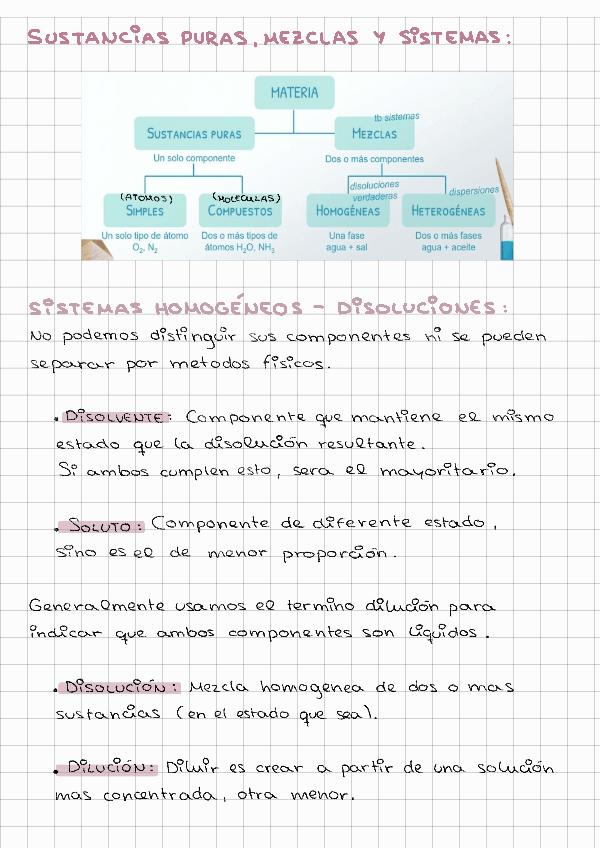 SUSTANCIAS PURAS, MEZCLAS Y SISTEMAS:
MATERIA
tb sistemas
SUSTANCIAS PURAS
MEZCLAS
Un solo componente
Dos o más componentes
(ATOMOS)
(MOLECULAS)
disoluciones
verdaderas
dispersiones
SIMPLES
COMPUESTOS
HOMOGÉNEAS
HETEROGÉNEAS
Un solo tipo de átomo
O₂, N₂
Dos o más tipos de
átomos H₂O, NH₃
Una fase
agua + sal
Dos o más fases
agua + aceite
SISTEMAS HOMOGÉNEOS - DISOLUCIONES:
No podemos distinguir sus componentes ni se pueden
separar por metodos físicos.
. DISOLVENTE: Componente que mantiene el mismo
estado que la disolución resultante.
Si ambos cumplen esto, sera el mayoritario.
. SOLUTO: Componente de diferente estado,
sino es el de menor proporción.
Generalmente usamos el termino dilución para
indicar que ambos componentes son líquidos.
. DISOLUCIÓN: Mezcla homogenea de dos o mas
sustancias (en el estado que sea).
. DILUCIÓN: Diluir es crear a partir de una solución
mas concentrada, otra menor.